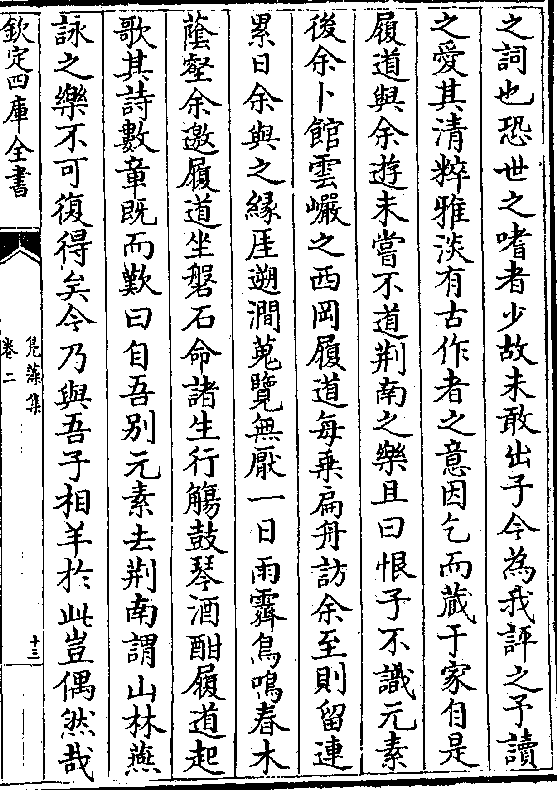 之詞也恐世之嗜者少故未敢出子今為我評之予讀
之愛其清粹雅淡有古作者之意因乞而藏于家自是
履道與余游未嘗不道荆南之樂且曰恨子不識元素
後余卜館雲巖之西岡履道每乗扁舟訪余至則留連
累日余與之緣厓遡澗蒐覽無厭一日雨霽鳥鳴春木
蔭壑余邀履道坐磐石命諸生行觴鼓琴酒酣履道起
歌其詩數章既而歎曰自吾別元素去荆南謂山林燕
詠之樂不可復得矣今乃與吾子相羊於此豈偶然哉
欽定四庫全書
鳬藻集
卷二
十三